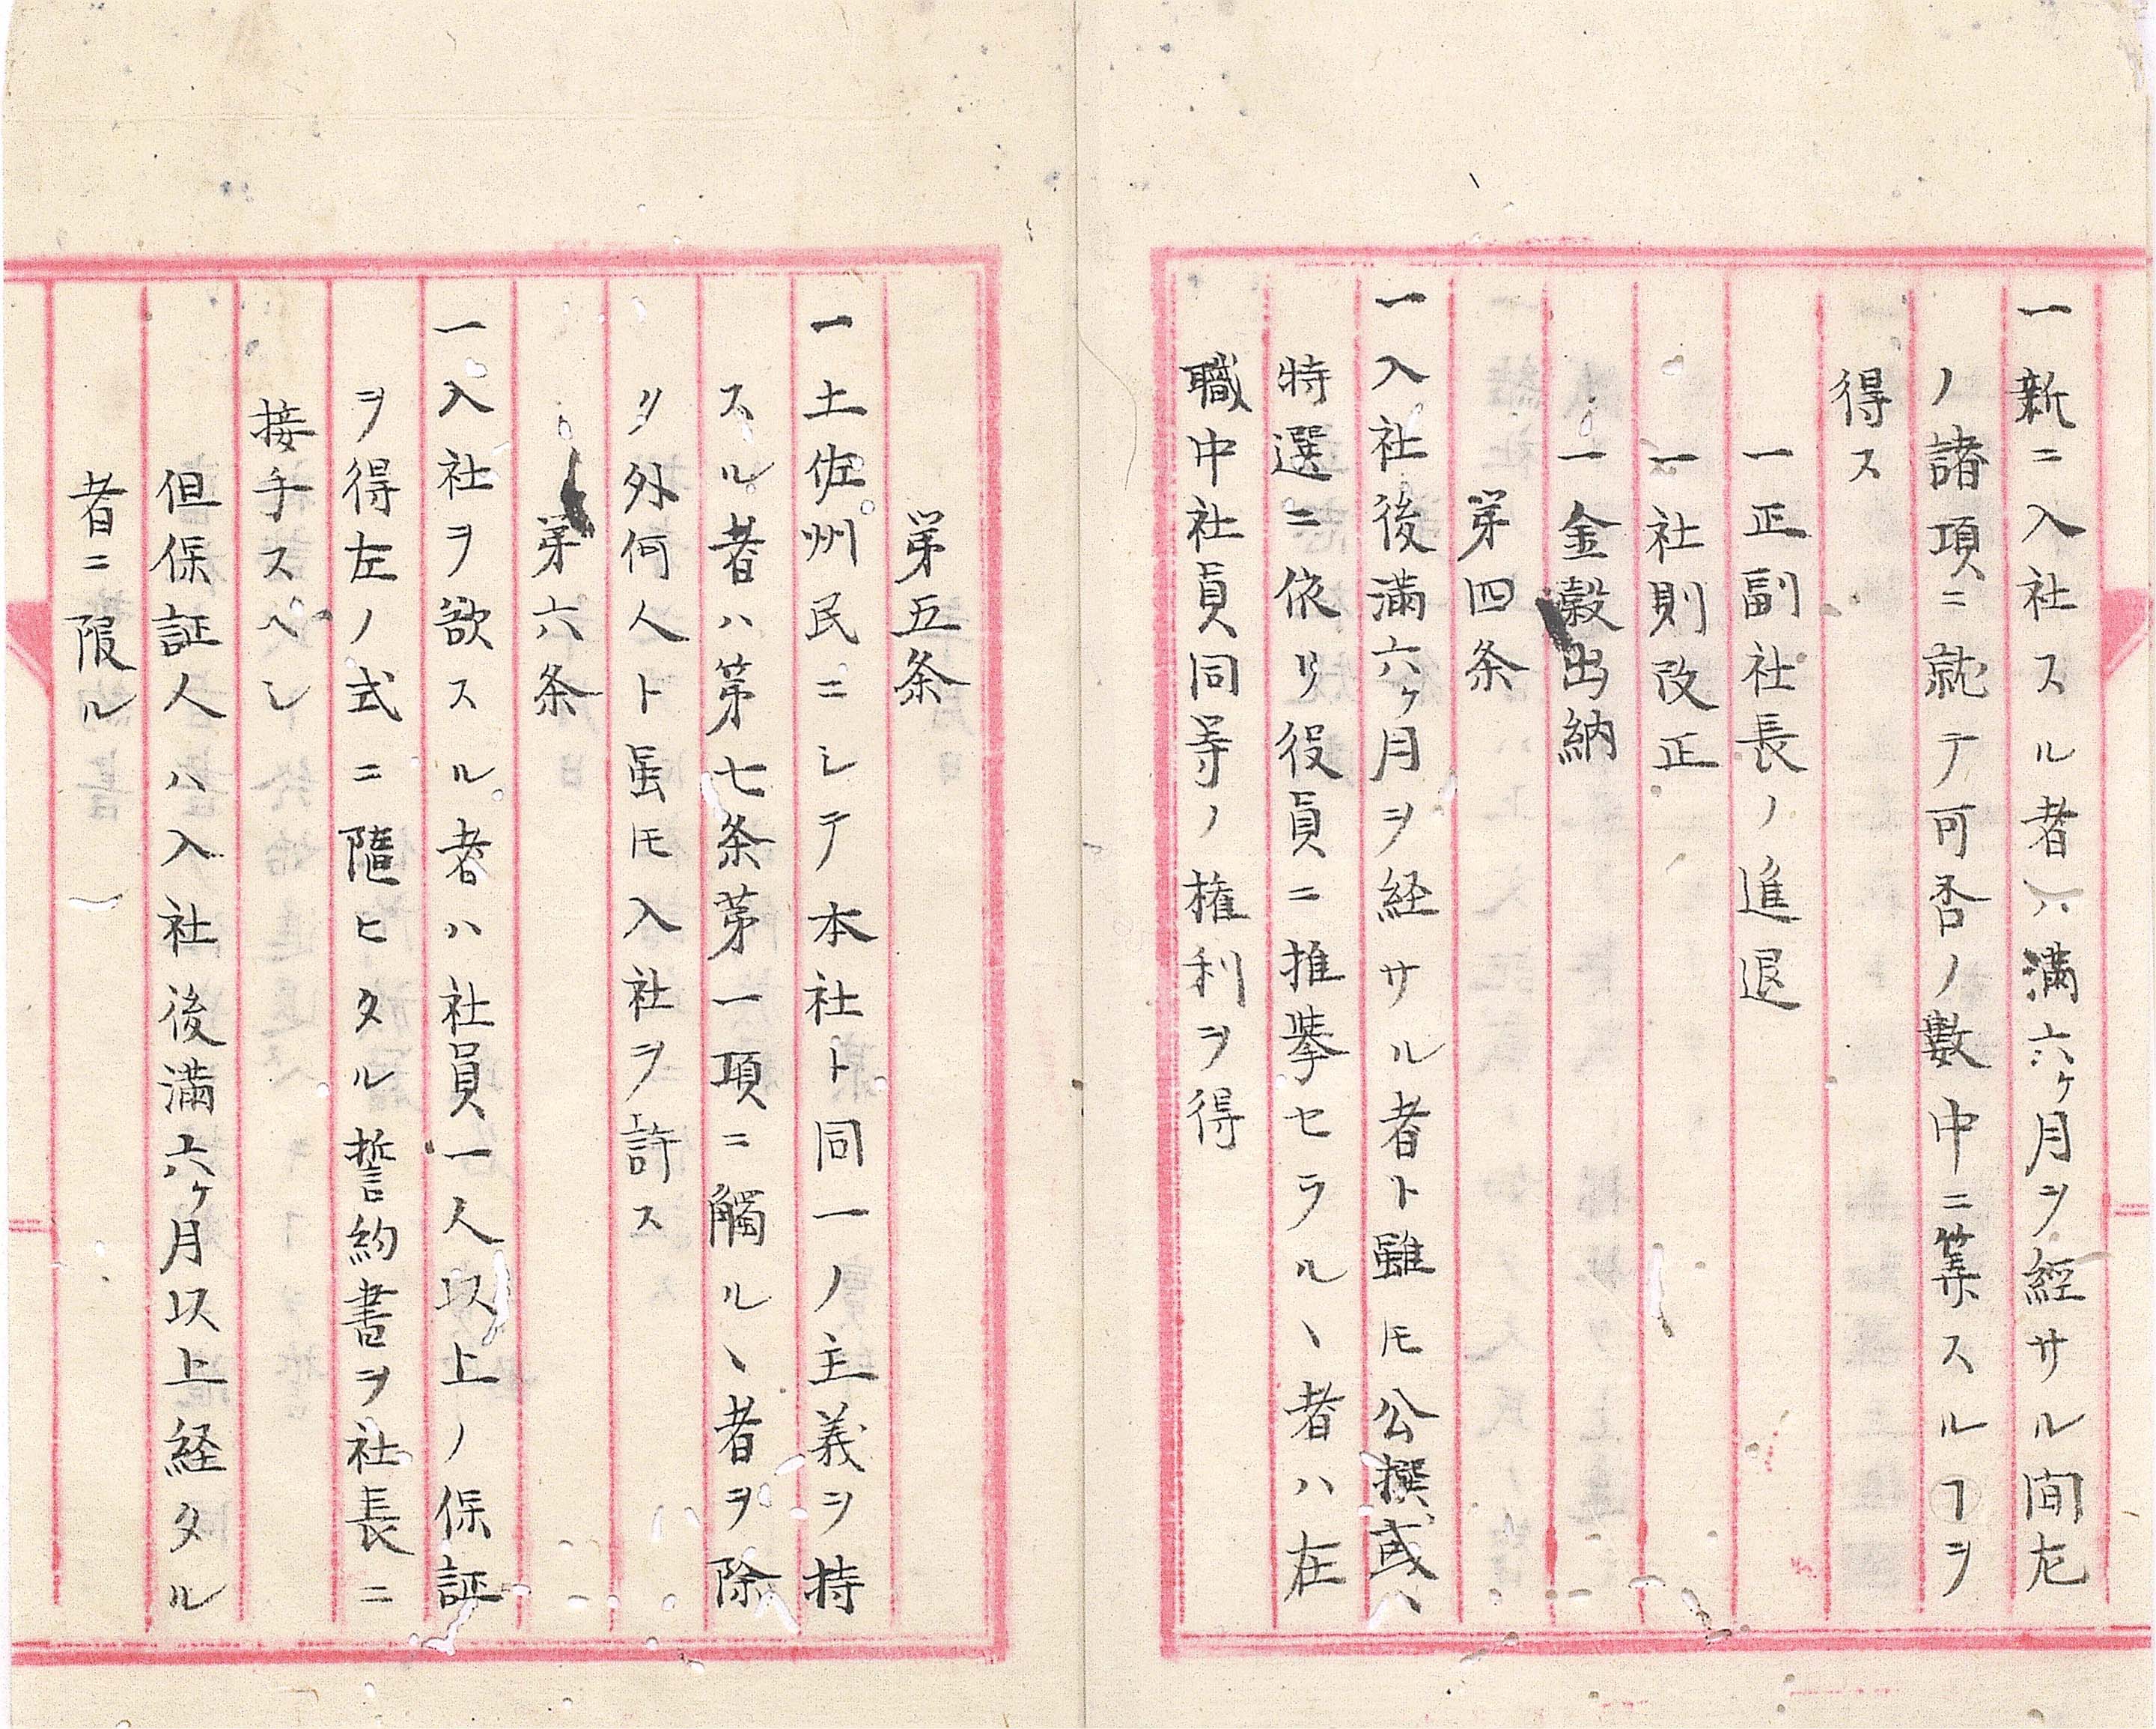 一新ニ入社スル者ハ満六ヶ月ヲ經サル間左
ノ諸項ニ就テ可否ノ數中ニ筭スルヿヲ
得ス
一正副社長ノ進退
一社則改正
一金穀出納
第四条
一入社後満六ヶ月ヲ経サル者ト雖𪜈公撰或ハ
特選ニ依リ役員ニ推挙セラル、者ハ在
職中社員同等ノ権利ヲ得
第五条
一土佐州民ニシテ本社ト同一ノ主義ヲ持
スル者ハ第七条第一項ニ觸ル、者ヲ除
リ外何人ト虽𪜈入社ヲ許ス
第六条
一入社ヲ欲スル者ハ社員一人以上ノ保証
ヲ得左ノ式ニ隨ヒタル誓約書ヲ社長ニ
接手スヘシ
但保証人ハ入社後満六ヶ月以上経タル
者ニ限ル